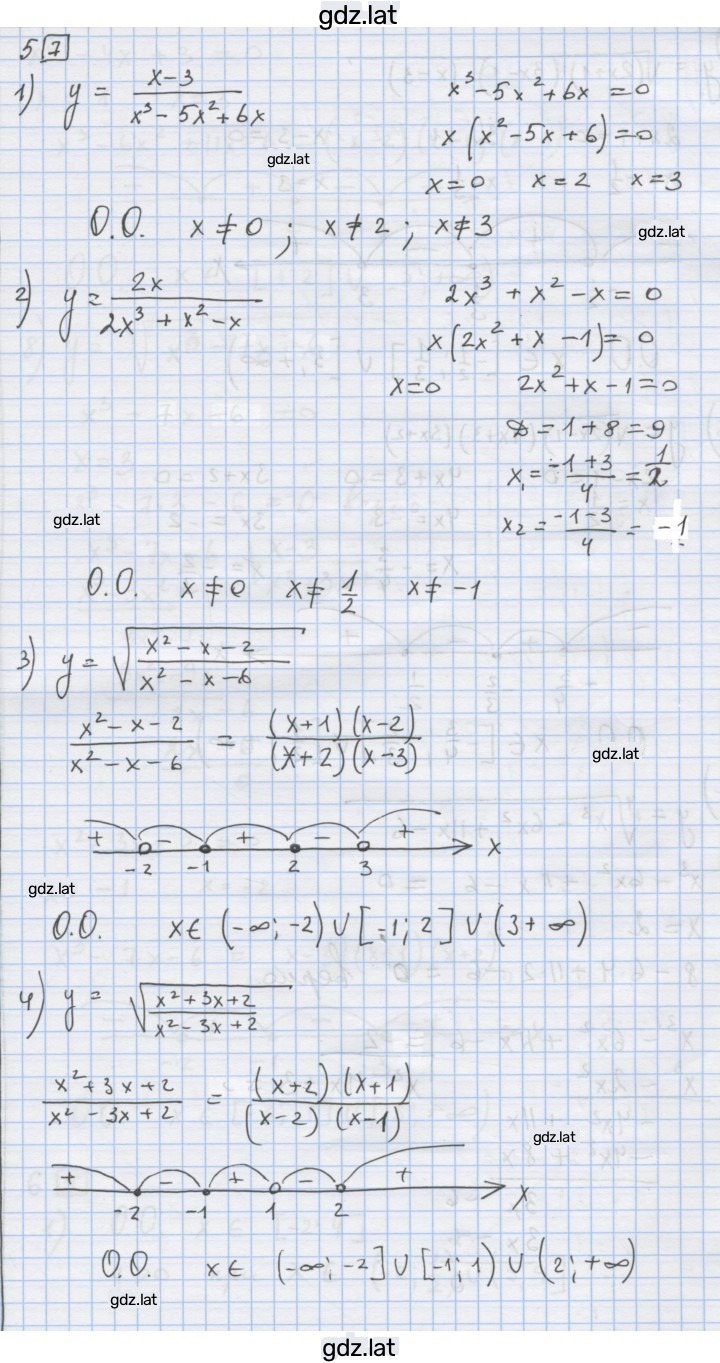 gdz.lat
5 7
1) y = (x-3)/(x³ - 5x² + 6x)
x³ - 5x² + 6x = 0
x(x² - 5x + 6) = 0
gdz.lat
x = 0 x = 2 x = 3
О.О. x ≠ 0 ; x ≠ 2 ; x ≠ 3
gdz.lat
2) y = 2x/(2x³ + x² - x)
2x³ + x² - x = 0
x(2x² + x - 1) = 0
x = 0 2x² + x - 1 = 0
D = 1 + 8 = 9
x₁ = (-1+3)/4 = 1/2
gdz.lat
x₂ = (-1-3)/4 = -1
О.О. x ≠ 0 x ≠ 1/2 x ≠ -1
3) y = √((x² - x - 2)/(x² - x - 6))
(x² - x - 2)/(x² - x - 6) = ((x+1)(x-2))/((x+2)(x-3))
gdz.lat
+ - + - + x
-2 -1 2 3
gdz.lat
О.О. x ∈ (-∞; -2) ∪ [-1; 2] ∪ (3 + ∞)
4) y = √((x² + 3x + 2)/(x² - 3x + 2))
(x² + 3x + 2)/(x² - 3x + 2) = ((x+2)(x+1))/((x-2)(x-1))
gdz.lat
+ - + - + x
-2 -1 1 2
О.О. x ∈ (-∞; -2] ∪ [-1; 1) ∪ (2; +∞)
gdz.lat
gdz.lat